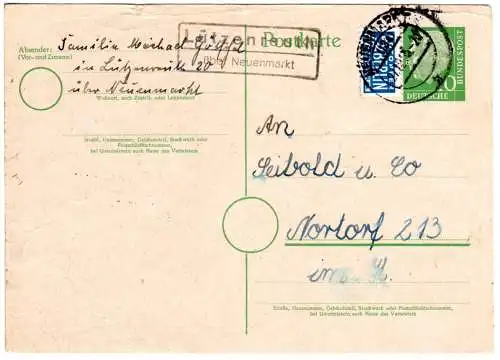 Absender:
(Vor- und Zuname)
Familie Michael
in Lützenreuth 20
über Neuenmarkt
Wohnort, auch Zustell- oder Leitpostamt
Straße, Hausnummer, Gebäudeteil, Stockwerk oder Postschließfachnummer,
bei Untermietern auch Name des Vermieters
Postkarte
über Neuenmarkt
NOTOPFER
BERLIN
DEUTSCHE
BUNDESPOST
An
Seibold u. Co
Nortorf 213
Straße, Hausnummer, Gebäudeteil, Stockwerk oder Postschließfachnummer,
bei Untermietern auch Name des Vermieters